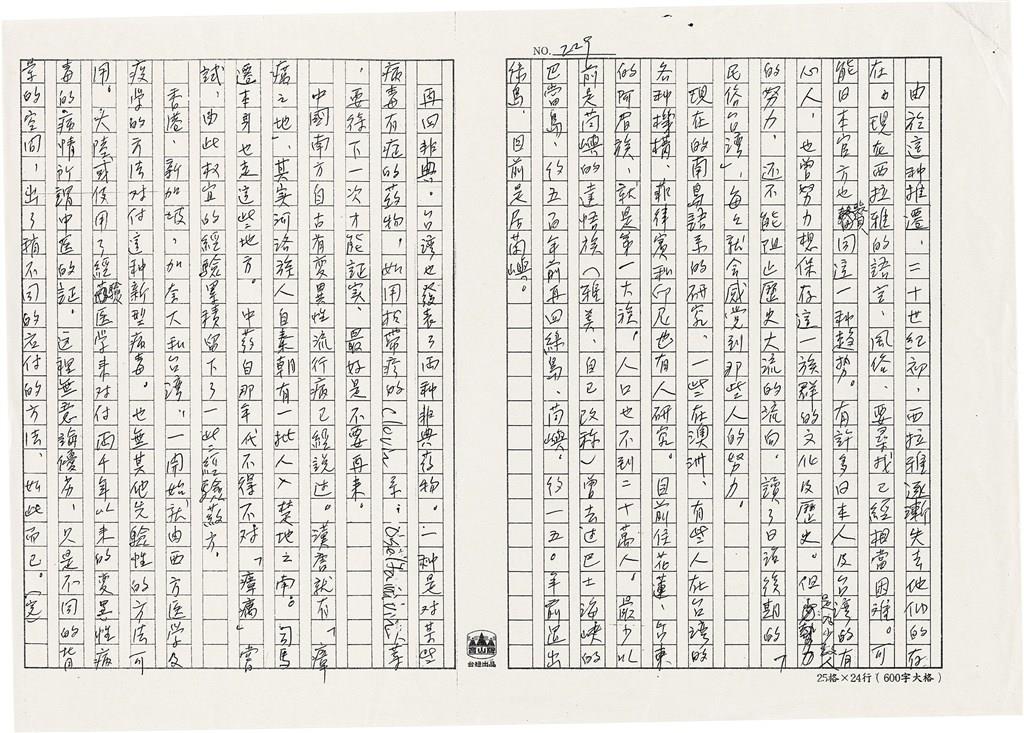 NO. 229
由於這種推遷，二十世紀初，西拉雅逐漸失去他們的存
在。現在西拉雅的語言、風俗、要尋找已經相當困難。可
能日本官方也贊同這一種趨勢。有許多日本人及台灣的有
心人，也曾努力想保存這一族群的文化及歷史。但是為少數人
的努力，還不能阻止歷史大流的流向。讀了日治後期的「
民俗台灣」，每每就會感覺到那些人的努力。
現在的南島語系的研究，一些在澳洲、有些人在台灣的
各種機構、菲律賓和印尼也有人研究。目前住花蓮、台東
的阿眉族，就是第一大族。人口也不到二十萬人。最少以
前是荷嶼的達悟族（雅美、自己改稱）曾去过巴士海峽的
巴當島、約五百年前再回綠島、荷嶼。約一五〇年前退出
綠島，目前是居蘭嶼。
再回非典。台灣也發表了兩種非典药物。一種是對某些
病毒有症的药物，如用抗帶疹的
，要待下一次才能証实、最好是不要再来。
中國南方自古有变異性流行病已經說过。漢書就有「瘴
癘之地」、其实河洛族人自秦朝有一批人入楚地之南。司馬
遷本身也走這些地方。中药自那年代不得不对「瘴癘」嘗
試，由此权宜的經驗累積留下了一些經驗药方。
香港、新加坡，加拿大和台湾，一開始就由西方医学及
疫学的方法対付這种新型病毒。也無其他先驗性的方法可
用。大陸或使用了經驗医学来対付兩千年以来的变異性病
毒的病情所謂中医的証。这裡無意論優劣，只是不同的背
景的空间，出了稍不同的应付的方法，如此而已。（完）
高山牌
台综出品
25格×24行（600字大格）